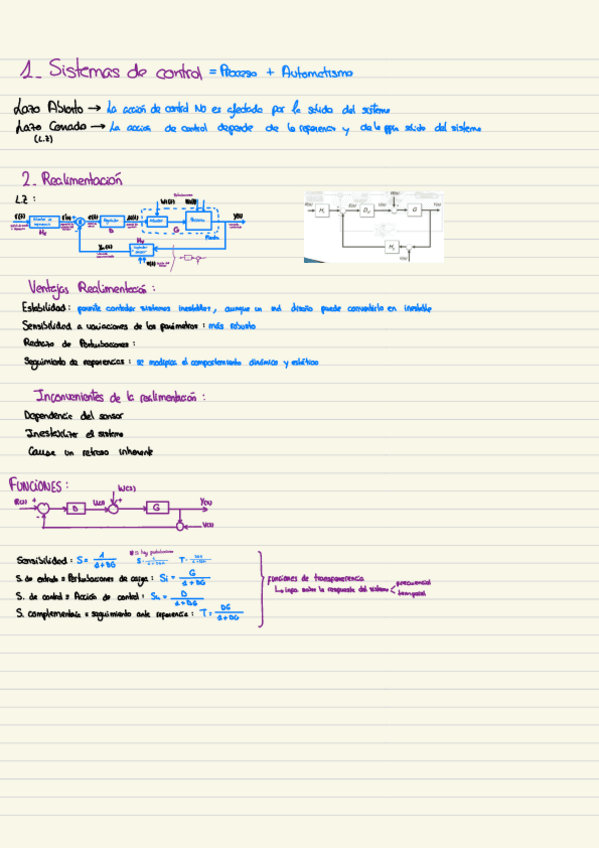 1_ Sistemas de control = Proceso + Automatismo
Lazo Abierto → La acción de control NO es afectada por la salida del sistema
Lazo Cerrado → La acción de control depende de la referencia y de la salida del sistema
(L.Z)
2_ Realimentación
L.Z :
Ventajas Realimentación :
Estabilidad : permite controlar sistemas inestables, aunque un mal diseño puede convertirlo en inestable
Sensibilidad a variaciones de los parámetros : más robusto
Rechazo de Perturbaciones :
Seguimiento de referencias : se modifica el comportamiento dinámico y estático
Inconvenientes de la realimentación :
Dependencia del sensor
Inestabilizar el sistema
Causa un retraso inherente
FUNCIONES :
W(s)
R(s) + D U(s) + G Y(s)
V(s)
Sensibilidad : S = 1 / 1+DG
S. de entrada = Perturbaciones de carga : Si = G / 1+DG
S. de control = Acción de control : Su = D / 1+DG
S. complementaria = seguimiento ante referencia : T = DG / 1+DG
funciones de transparencia
↳ info. sobre la respuesta del sistema < frecuencial
temporal